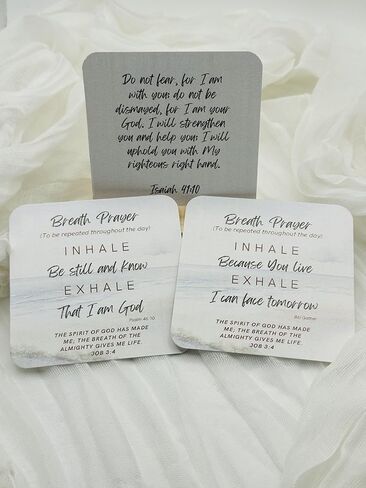 Do not fear, for I am
with you; do not be
dismayed, for I am your
God. I will strengthen
you and help you; I will
uphold you with My
righteous right hand.
Isaiah 41:10
Breath Prayer
(To be repeated throughout the day)
INHALE
Be still and know
EXHALE
That I am God
Psalm 46:10
THE SPIRIT OF GOD HAS MADE
ME, THE BREATH OF THE
ALMIGHTY GIVES ME LIFE.
JOB 3:4
Breath Prayer
(To be repeated throughout the day)
INHALE
Because You live
EXHALE
I can face tomorrow
Bill Gaither
THE SPIRIT OF GOD HAS MADE
ME, THE BREATH OF THE
ALMIGHTY GIVES ME LIFE.
JOB 3:4